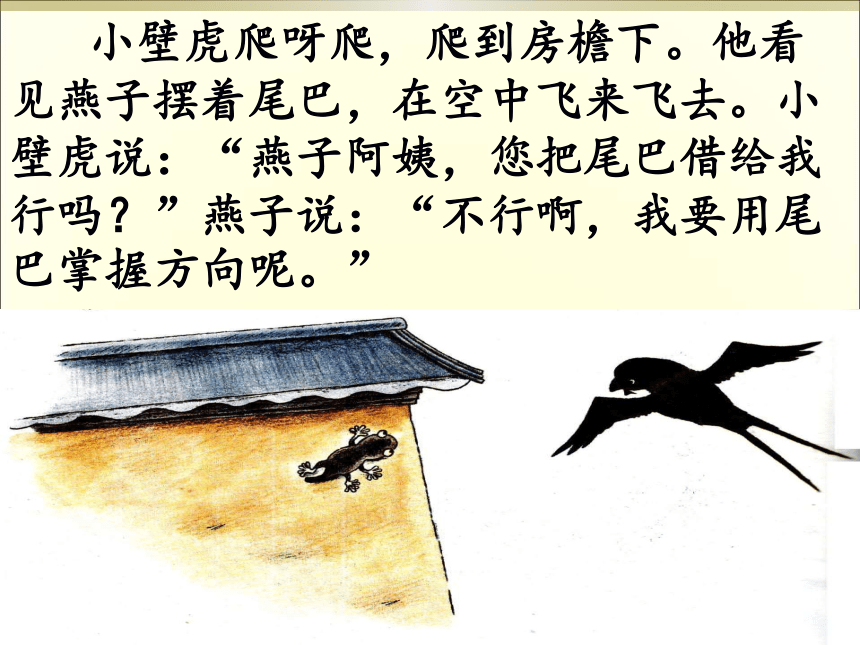 小壁虎爬呀爬，爬到房檐下。他看
见燕子摆着尾巴，在空中飞来飞去。小
壁虎说：“燕子阿姨，您把尾巴借给我
行吗？”燕子说：“不行啊，我要用尾
巴掌握方向呢。”